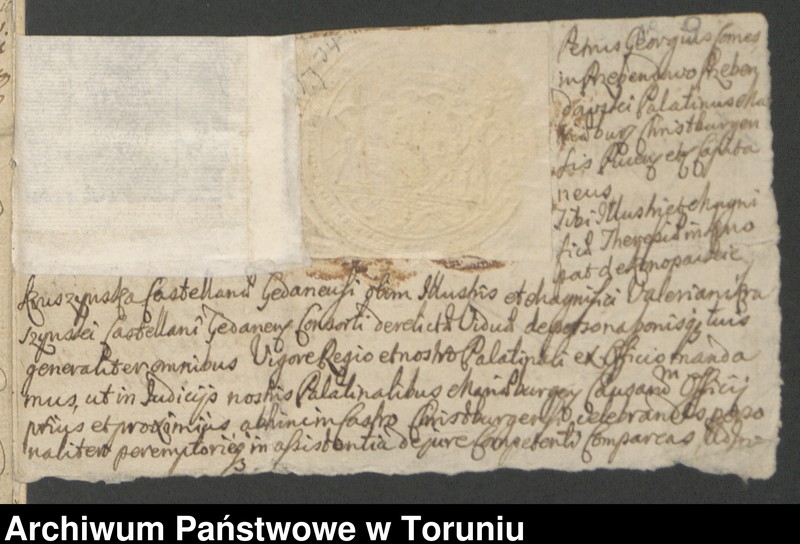 Petrus Georgius Comes
in Przebendowo Przeben
dowski Palatinus Ma
rienburg Christburgen
sis Pucen etc Capita
neus
Tibi Illustri et Magni
ficæ Theresiæ in
Kruszynska Castellanæ Gedanensi olim Illustris et Magnifici Valeriani Kru
szynski Castellani Gedanen Consorti derelictæ Viduæ de persona bonisq tuis
generaliter omnibus Vigore Regio et nostro Palatinali ex Officio manda
mus, ut in Judicijs nostris Palatinalibus Marienburgen Causarum Officij
prius et proximius ab hinc in Castro Christburgensi celebrandis perso
naliter peremptorieq in assistentia de jure Competenti Compareas
Archiwum Państwowe w Toruniu